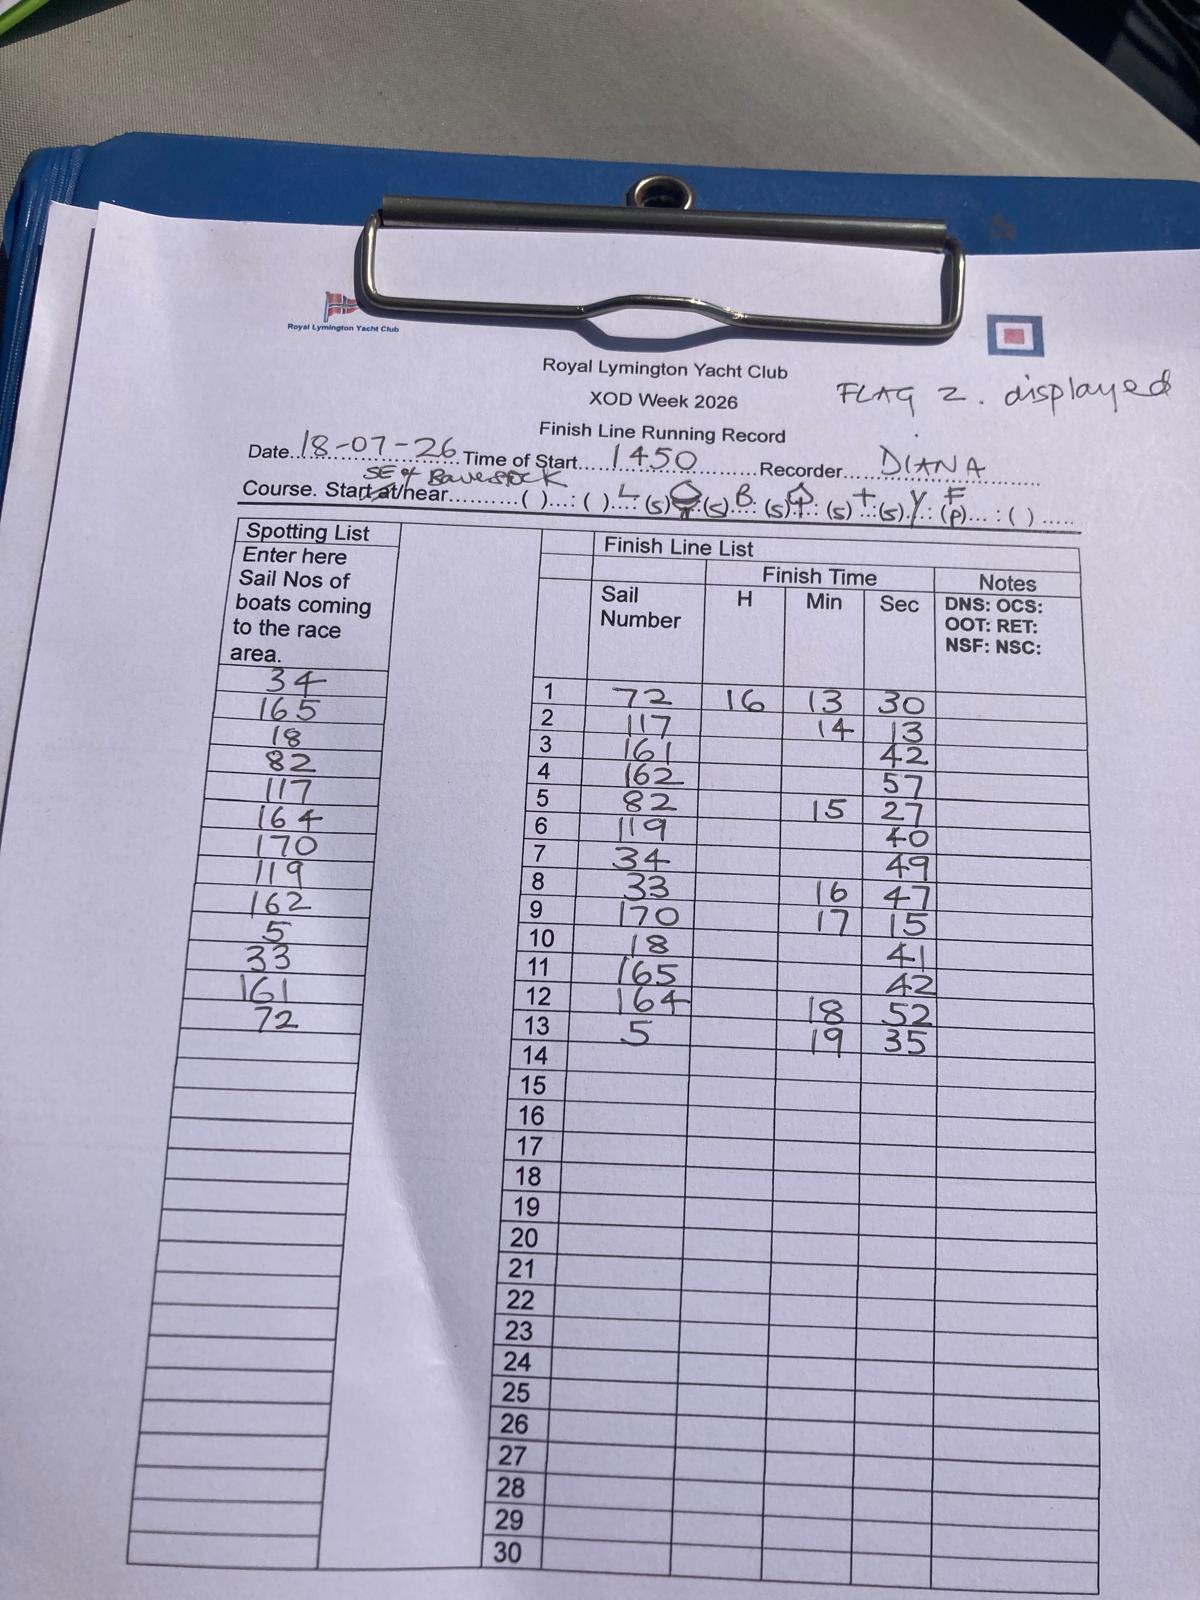 Royal Lymington Yacht Club
Royal Lymington Yacht Club
XOD Week 2026
FLAG Z. displayed
Finish Line Running Record
Date..18-07-26..Time of Start....1450........Recorder....DIANA........
SE of
Course. Start at/near..........( )...: ( ) L (s) (s) B (s) (s) + (s) Y : F (p)... : ( ) .....
Spotting List
Enter here
Sail Nos of
boats coming
to the race
area.
34
165
18
82
117
164
170
119
162
5
33
161
72
Finish Line List
Finish Time
Sail Number H Min Sec Notes
DNS: OCS:
OOT: RET:
NSF: NSC:
1 72 16 13 30
2 117 14 13
3 161 42
4 162 57
5 82 15 27
6 119 40
7 34 49
8 33 16 47
9 170 17 15
10 18 41
11 165 42
12 164 18 52
13 5 19 35
14
15
16
17
18
19
20
21
22
23
24
25
26
27
28
29
30